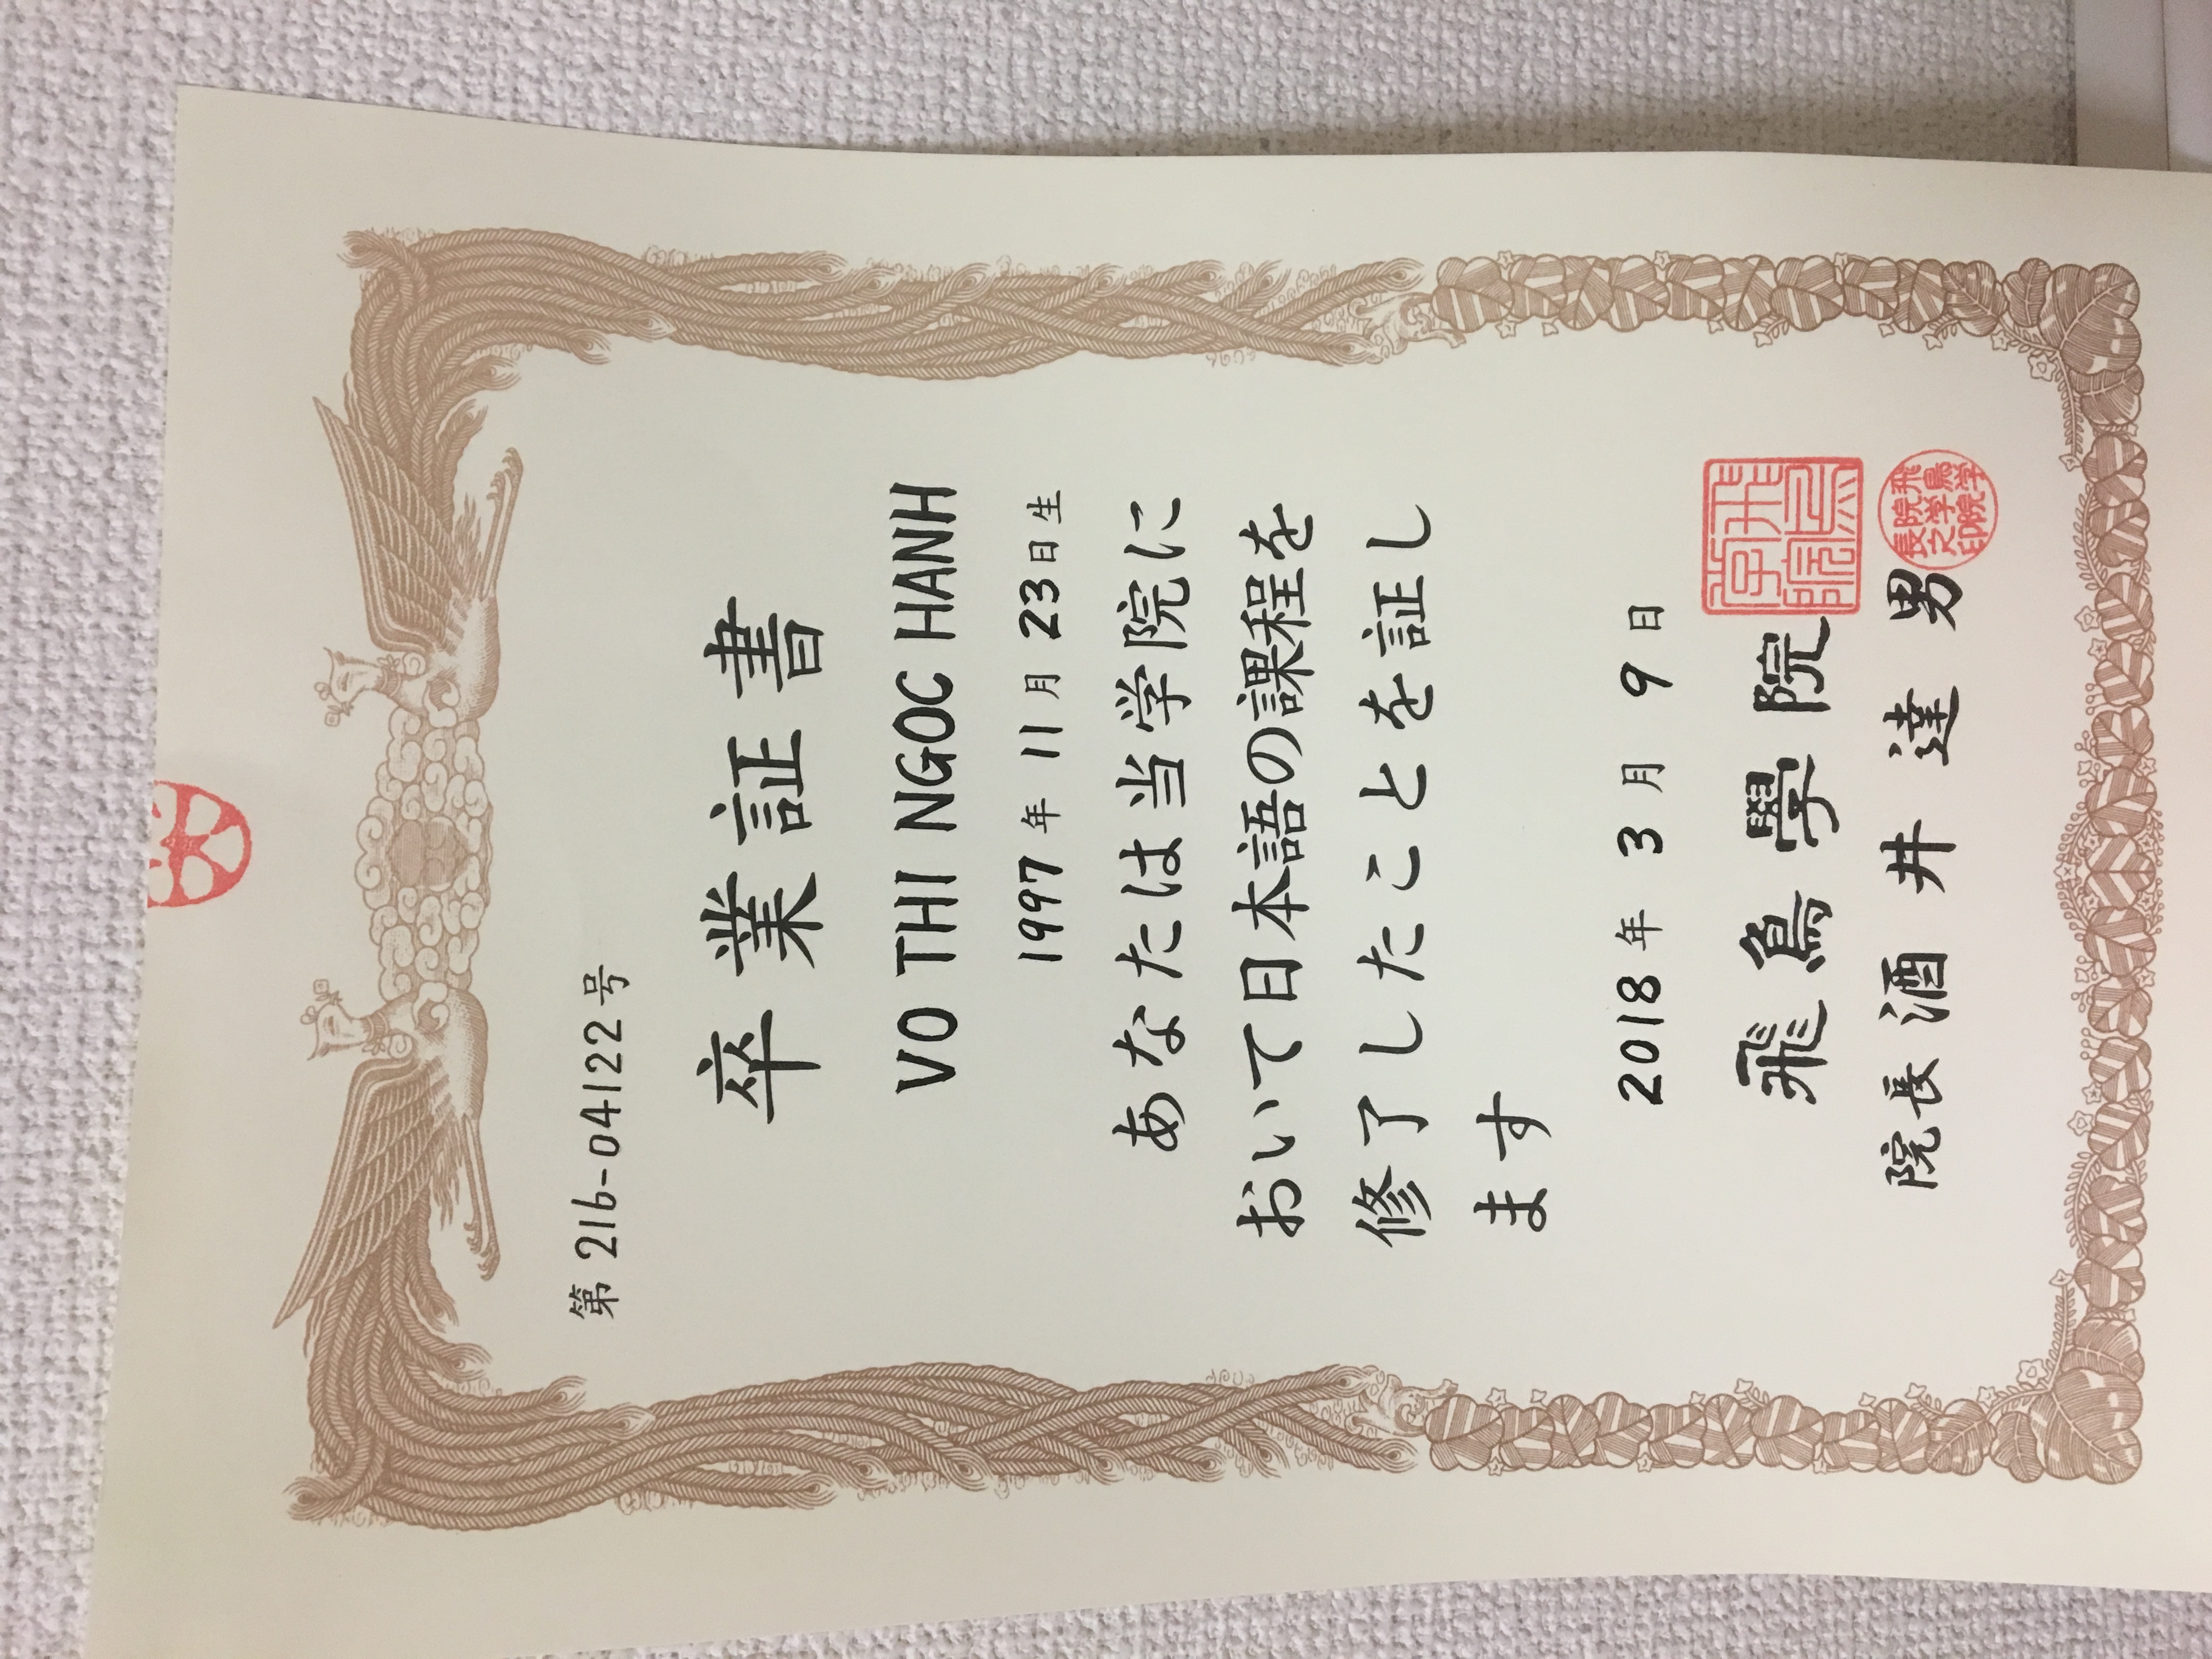 第216-04122号
卒業証書
VO THI NGOC HANH
1997年11月23日生
あなたは当学院に
おいて日本語の課程を
修了したことを証し
ます
2018年3月9日
飛鳥學院
院長 酒井達男
飛鳥学院
飛鳥学院
学院長
之印